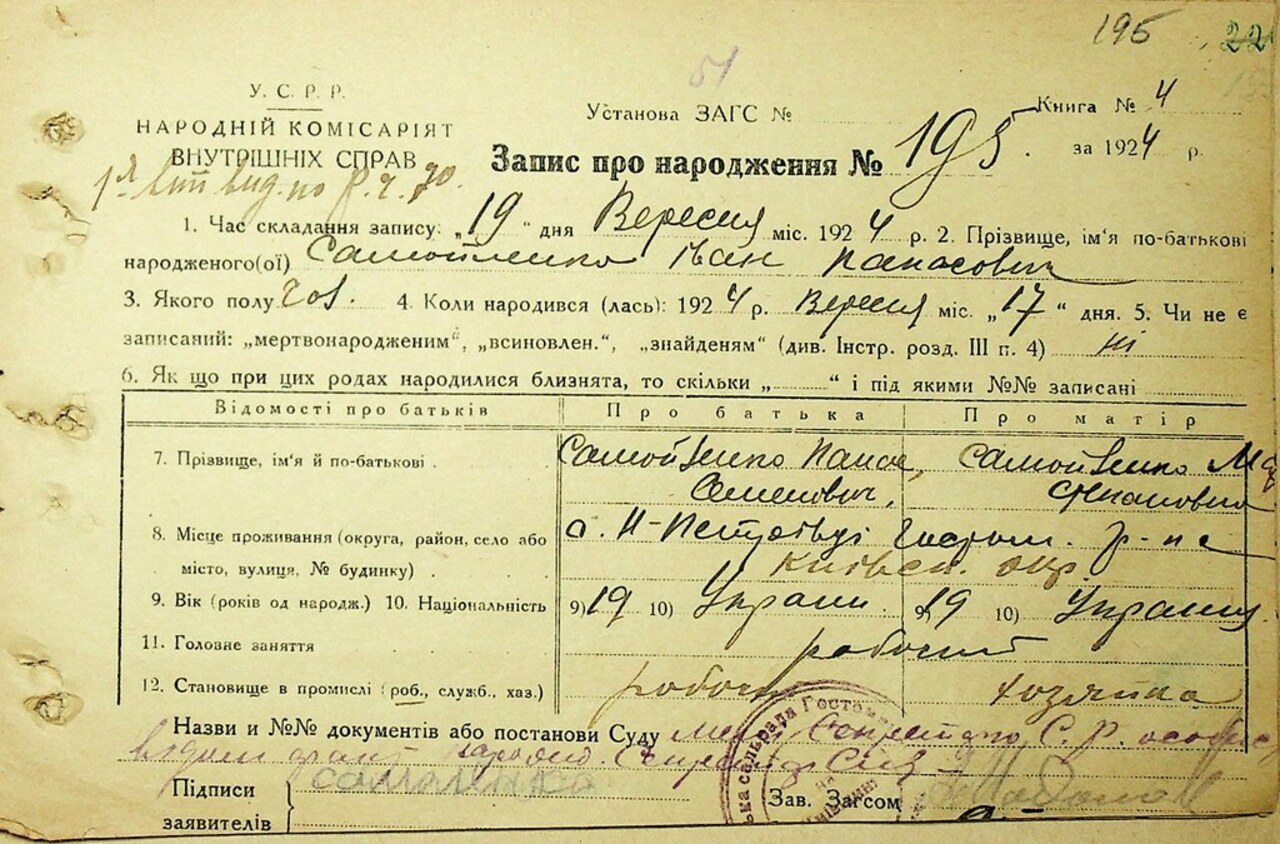 195 22
51
У. С. Р. Р.
НАРОДНІЙ КОМІСАРІЯТ
ВНУТРІШНІХ СПРАВ
Установа ЗАГС №
Книга № 4
Запис про народження № 195. за 1924 р.
1. Час складання запису: „19" дня Вересня міс. 1924 р. 2. Прізвище, ім'я по-батькові
народженого(ої) Самойленко Іван Панасович
3. Якого полу чол. 4. Коли народився (лась): 1924 р. Вересня міс. „17" дня. 5. Чи не є
записаний: „мертвонародженим", „всиновлен.", „знайденям" (див. Інстр. розд. III п. 4) ні
6. Як що при цих родах народилися близнята, то скільки „ " і під якими №№ записані
Відомості про батьків Про батька Про матір
7. Прізвище, ім'я й по-батькові . Самойленко Панас Самойленко
Семенович, Степановна
8. Місце проживання (округа, район, село або с. Н-Петрівці Гостом. р-на
місто, вулиця, № будинку) . Київськ. окр.
9. Вік (років од народж.) 10. Національність 9) 19 10) Украин. 9) 19 10)
11. Головне заняття
12. Становище в промислі (роб., служб., хаз.) хозяйка
Назви и №№ документів або постанови Суду С. Р.
Підписи
заявителів
Зав. Загсом